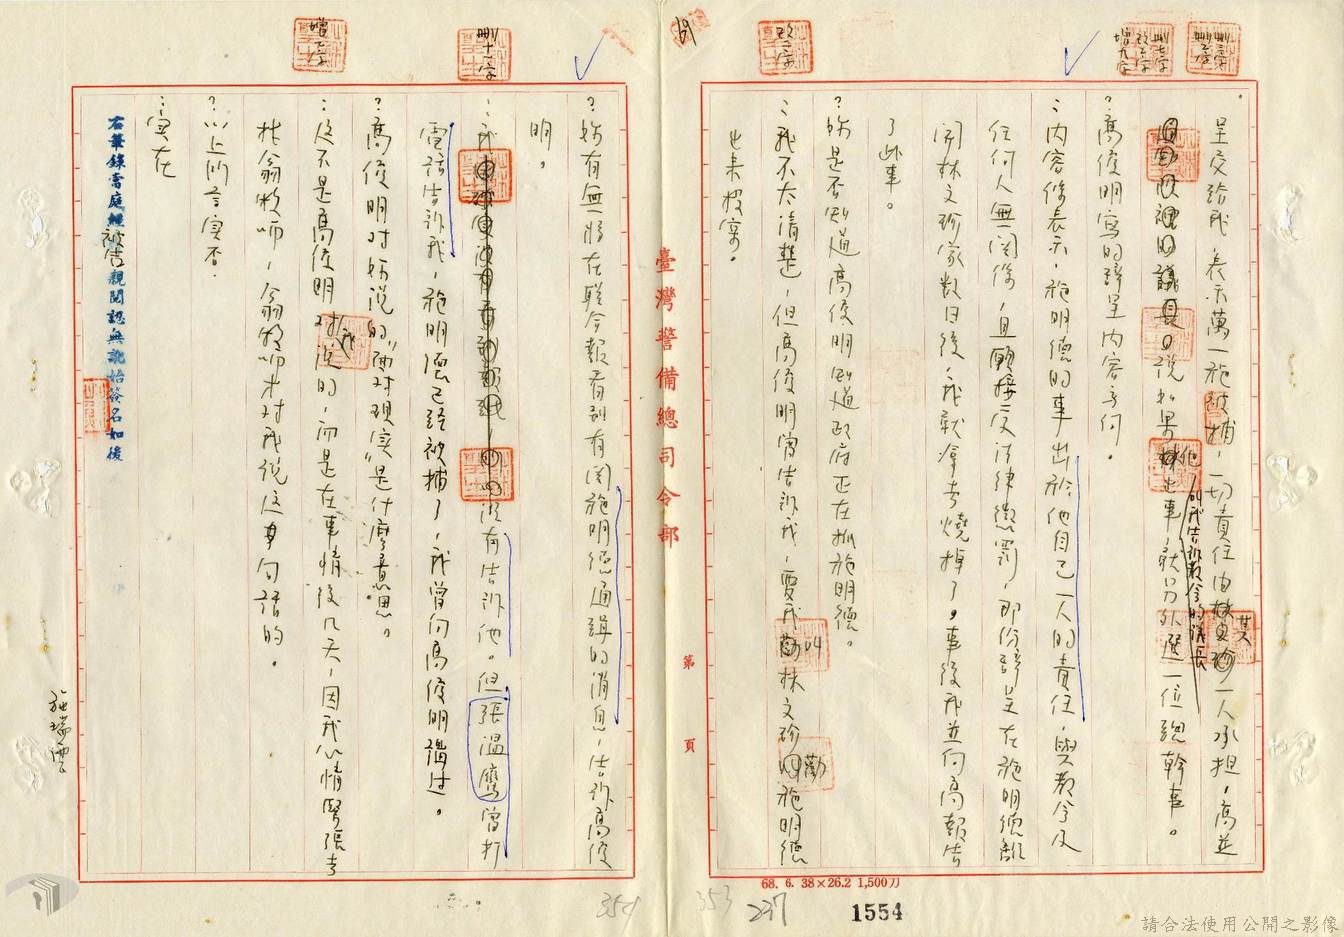 刪三字
刪二字
刪七字
改二字
增九字
改一字
呈交給我，表示萬一施被捕，一切責任由林文珍一人承担，高並
說如果他出事，就另外選一位總幹事。
他叫我告訴教会的議長
？高俊明寫的辞呈内容如何。
：内容係表示，施明德的事出於他自己一人的責任，與教会及
任何人無関係，且願接受法律懲罰，那份辞呈在施明德離
開林文珍家数日後，我就拿去燒掉了。事後我並向高報告
了此事。
？妳是否知道高俊明知道政府正在抓施明德。
：我不太清楚，但高俊明曾告訴我，要我叫林文珍勸施明德
出来投案。
臺灣警備總司令部
第
頁
68. 6. 38×26.2 1,500刀
1554
353
237
69
刪十一字
增一字
？妳有無將在联合報看到有関施明德通緝的消息，告訴高俊
明。
：我没有告訴他。但張温鷹曾打
電話告訴我，施明德已経被捕了，我曾向高俊明講过。
？高俊明对妳說的"面对現实"是什麼意思。
：这不是高俊明对我說的，而是在事情後几天，因我心情緊張去
找翁牧師，翁牧師才对我說这句話的。
？以上所言实否。
：实在
右筆錄當庭經被告親閱認無訛始簽名如後
施瑞雲
354
請合法使用公開之影像